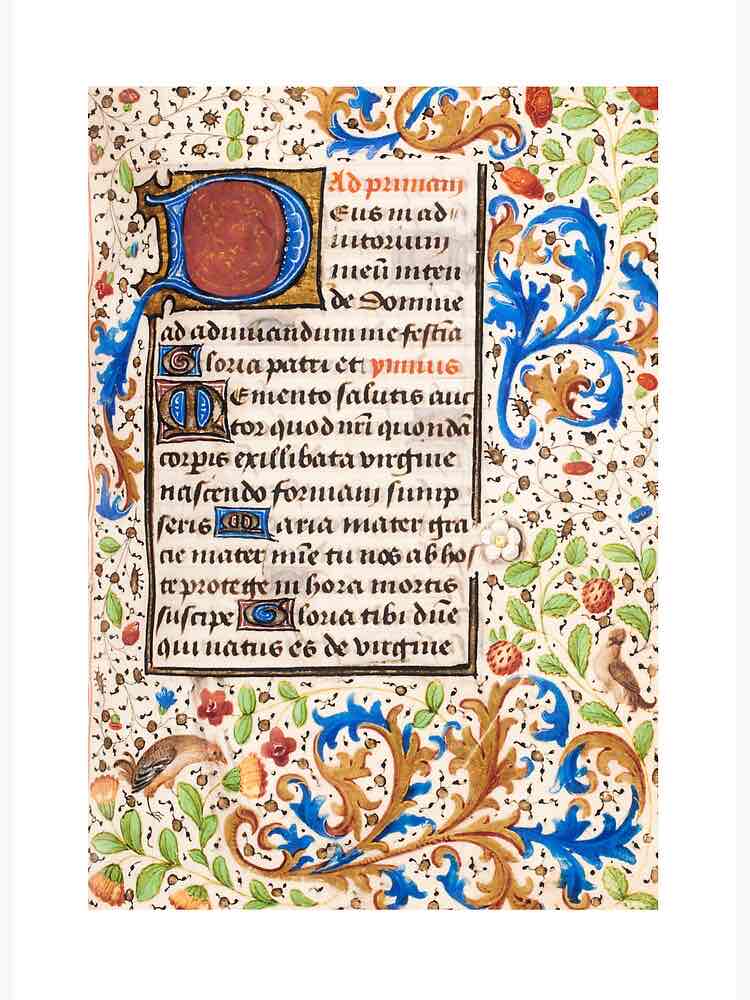 Ad primam
Deus in ad
iutorium
meū inten
de Domine
ad adiuuandum me festia
Gloria patri et ymnus
Memento salutis auc
tor quod nrī quondā
corpis ex illibata virgine
nascendo formam sump
seris Maria mater gra
cie mater mīe tu nos ab hos
te protege in hora mortis
suscipe Gloria tibi dn̄e
qui natus es de virgine